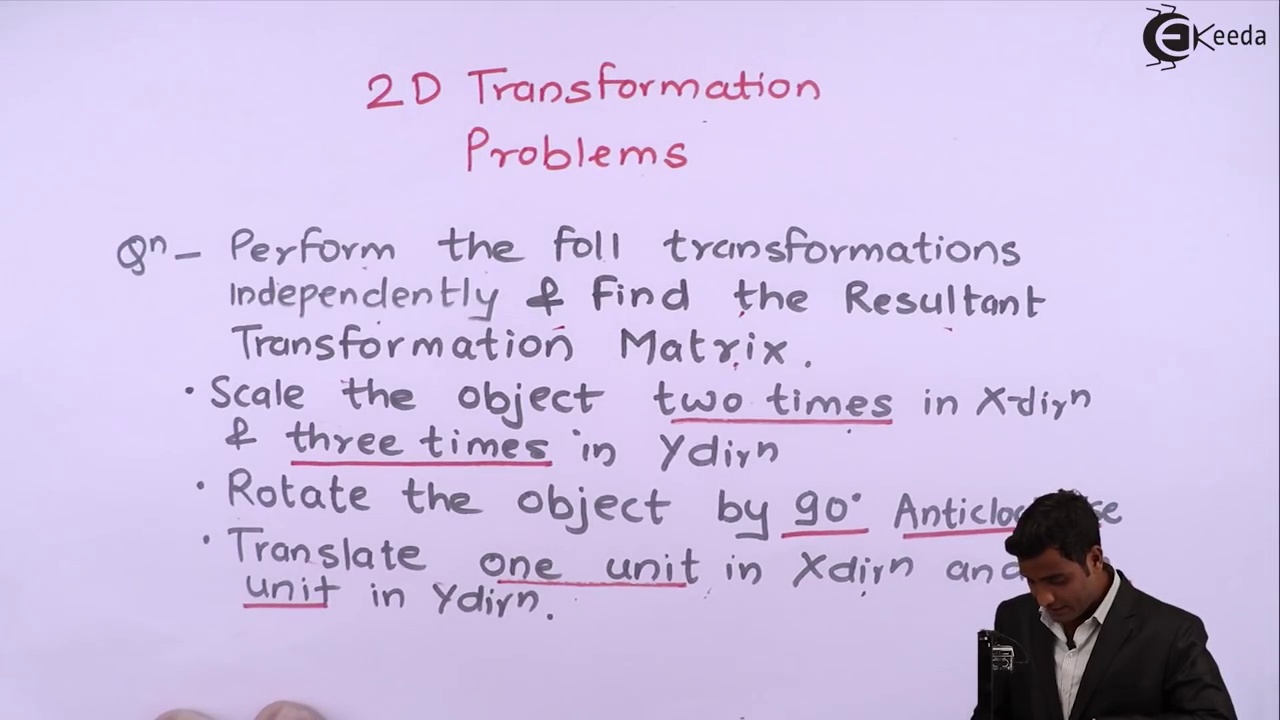 EKeeda
2D Transformation
Problems
Qn - Perform the foll transformations
independently & find the Resultant
Transformation Matrix.
• Scale the object two times in X-dirn
& three times in Ydirn
• Rotate the object by 90°
• Translate one unit in Xdirn and
unit in Ydirn.